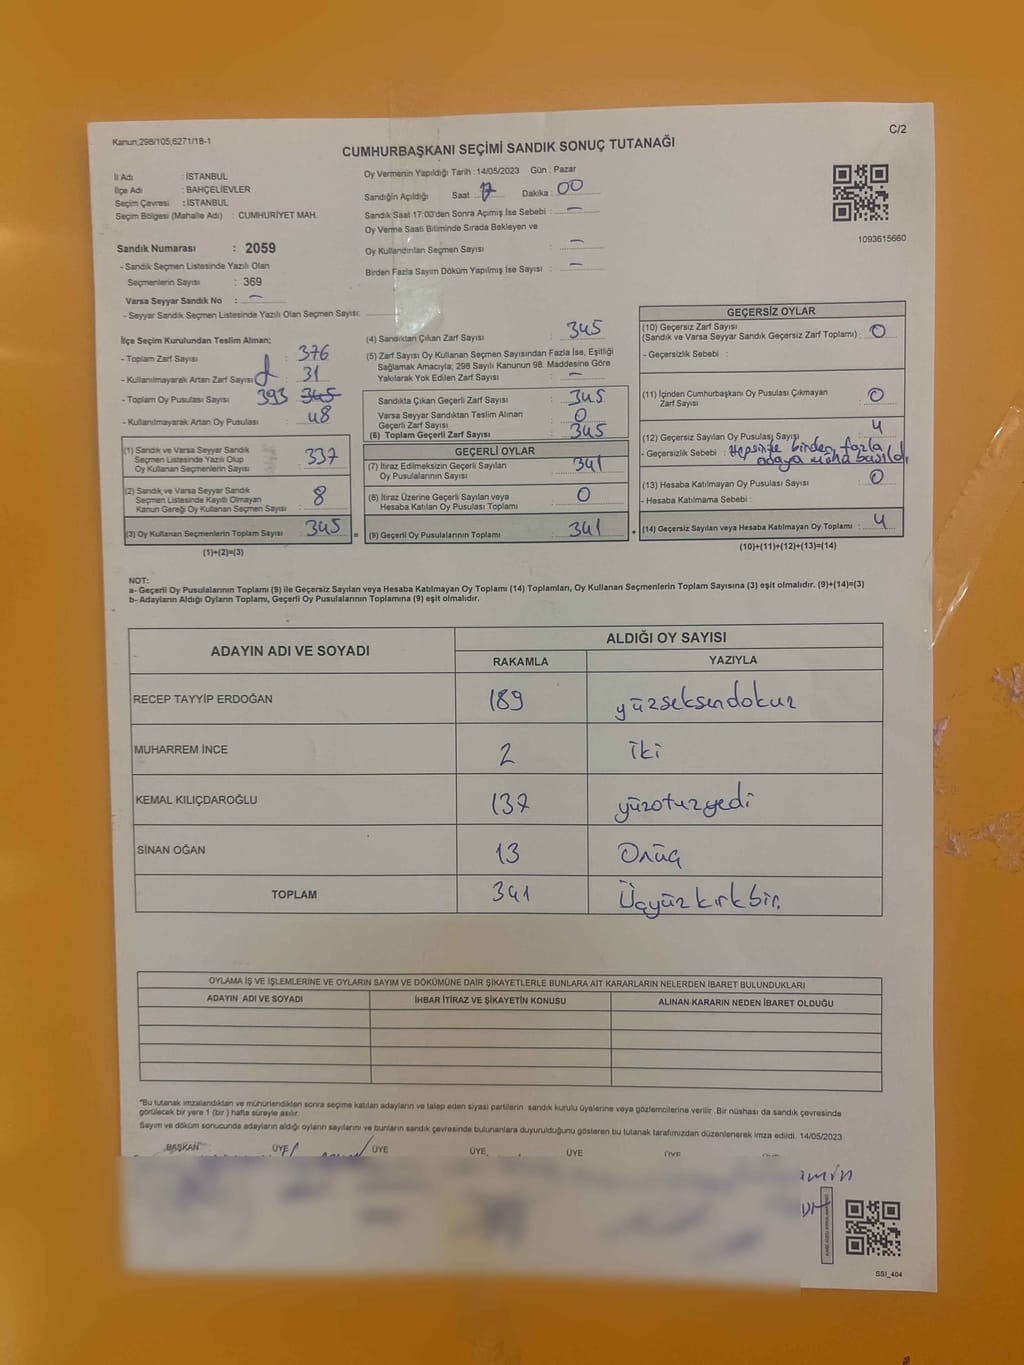 Kanun;298/105;6271/18-1
C/2
CUMHURBAŞKANI SEÇİMİ SANDIK SONUÇ TUTANAĞI
İl Adı : İSTANBUL
İlçe Adı : BAHÇELİEVLER
Seçim Çevresi : İSTANBUL
Seçim Bölgesi (Mahalle Adı) : CUMHURİYET MAH.
Sandık Numarası : 2059
- Sandık Seçmen Listesinde Yazılı Olan
Seçmenlerin Sayısı : 369
Varsa Seyyar Sandık No : –
- Seyyar Sandık Seçmen Listesinde Yazılı Olan Seçmen Sayısı:
Oy Vermenin Yapıldığı Tarih : 14/05/2023 Gün : Pazar
Sandığın Açıldığı Saat : 17 Dakika : 00
Sandık Saat 17:00'den Sonra Açımış İse Sebebi : –
Oy Verme Saati Bitiminde Sırada Bekleyen ve
Oy Kullandırılan Seçmen Sayısı : –
Birden Fazla Sayım Döküm Yapılmış İse Sayısı : –
1093615660
İlçe Seçim Kurulundan Teslim Alınan;
- Toplam Zarf Sayısı : 376
- Kullanılmayarak Artan Zarf Sayısı : 31
- Toplam Oy Pusulası Sayısı : 393 345
- Kullanılmayarak Artan Oy Pusulası : 48
(1) Sandık ve Varsa Seyyar Sandık
Seçmen Listesinde Yazılı Olup
Oy Kullanan Seçmenlerin Sayısı : 337
(2) Sandık ve Varsa Seyyar Sandık
Seçmen Listesinde Kayıtlı Olmayan
Kanun Gereği Oy Kullanan Seçmen Sayısı : 8
(3) Oy Kullanan Seçmenlerin Toplam Sayısı : 345
(1)+(2)=(3)
(4) Sandıktan Çıkan Zarf Sayısı : 345
(5) Zarf Sayısı Oy Kullanan Seçmen Sayısından Fazla İse, Eşitliği
Sağlamak Amacıyla; 298 Sayılı Kanunun 98. Maddesine Göre
Yakılarak Yok Edilen Zarf Sayısı : –
Sandıkta Çıkan Geçerli Zarf Sayısı : 345
Varsa Seyyar Sandıktan Teslim Alınan
Geçerli Zarf Sayısı : 0
(6) Toplam Geçerli Zarf Sayısı : 345
GEÇERLİ OYLAR
(7) İtiraz Edilmeksizin Geçerli Sayılan
Oy Pusulalarının Sayısı : 341
(8) İtiraz Üzerine Geçerli Sayılan veya
Hesaba Katılan Oy Pusulası Toplamı : 0
= (9) Geçerli Oy Pusulalarının Toplamı : 341 +
GEÇERSİZ OYLAR
(10) Geçersiz Zarf Sayısı
(Sandık ve Varsa Seyyar Sandık Geçersiz Zarf Toplamı) : 0
- Geçersizlik Sebebi :
(11) İçinden Cumhurbaşkanı Oy Pusulası Çıkmayan
Zarf Sayısı : 0
(12) Geçersiz Sayılan Oy Pusulası Sayısı : 4
- Geçersizlik Sebebi : Hepsinde birden fazla
adaya mühür basıldı.
(13) Hesaba Katılmayan Oy Pusulası Sayısı : 0
- Hesaba Katılmama Sebebi :
(14) Geçersiz Sayılan veya Hesaba Katılmayan Oy Toplamı : 4
(10)+(11)+(12)+(13)=(14)
NOT:
a- Geçerli Oy Pusulalarının Toplamı (9) ile Geçersiz Sayılan veya Hesaba Katılmayan Oy Toplamı (14) Toplamları, Oy Kullanan Seçmenlerin Toplam Sayısına (3) eşit olmalıdır. (9)+(14)=(3)
b- Adayların Aldığı Oyların Toplamı, Geçerli Oy Pusulalarının Toplamına (9) eşit olmalıdır.
ADAYIN ADI VE SOYADI
ALDIĞI OY SAYISI
RAKAMLA YAZIYLA
RECEP TAYYİP ERDOĞAN 189 yüzseksendokuz
MUHARREM İNCE 2 İki
KEMAL KILIÇDAROĞLU 137 yüzotuzyedi
SİNAN OĞAN 13 Onüç
TOPLAM 341 Üçyüzkırkbir.
OYLAMA İŞ VE İŞLEMLERİNE VE OYLARIN SAYIM VE DÖKÜMÜNE DAİR ŞİKAYETLERLE BUNLARA AİT KARARLARIN NELERDEN İBARET BULUNDUKLARI
ADAYIN ADI VE SOYADI İHBAR İTİRAZ VE ŞİKAYETİN KONUSU ALINAN KARARIN NEDEN İBARET OLDUĞU
"Bu tutanak imzalandıktan ve mühürlendikten sonra seçime katılan adayların ve talep eden siyasi partilerin sandık kurulu üyelerine veya gözlemcilerine verilir .Bir nüshası da sandık çevresinde
görülecek bir yere 1 (bir ) hafta süreyle asılır.
Sayım ve döküm sonucunda adayların aldığı oyların sayılarını ve bunların sandık çevresinde bulunanlara duyurulduğunu gösteren bu tutanak tarafımızdan düzenlenerek imza edildi. 14/05/2023
BAŞKAN ÜYE ÜYE ÜYE ÜYE ÜYE
SSI_404